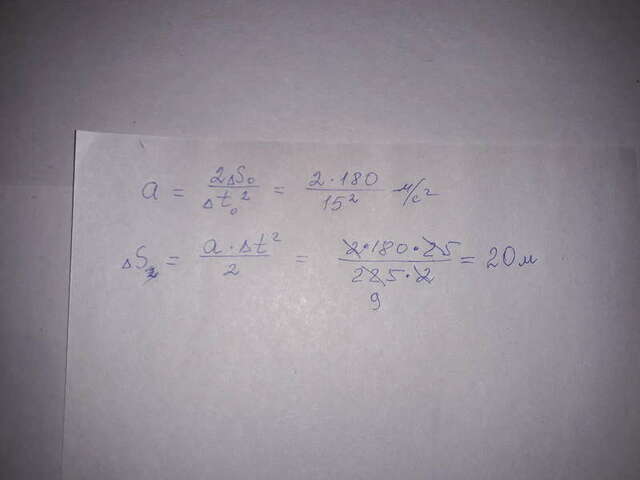 a = 2ΔS₀ / Δt₀² = 2·180 / 15² м/с²
ΔS₂ = a·Δt² / 2 = 2·180·25 / 225·2 = 20м
9